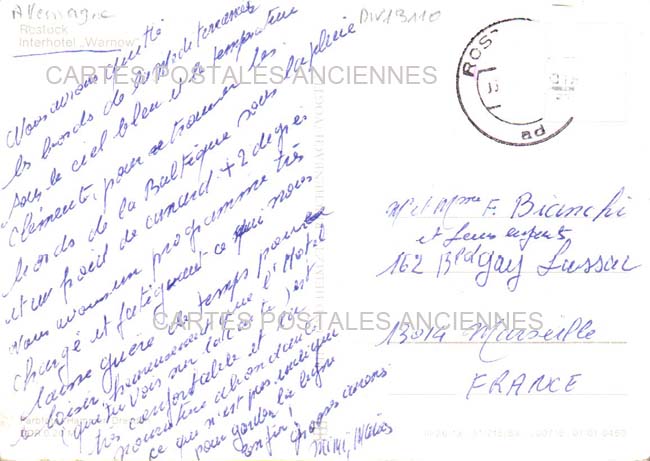 Allemagne
DIV13110
Rostock
Interhotel „Warnow"
CARTES POSTALES ANCIENNES
ROS
ad
Nous avions quitté
les bords de la Méditerranée
sous le ciel bleu et la température
Clémente, pour se trouver les
bords de la Baltique sous la pluie
et un froid de canard + 2 degrés
Nous avons un programme très
chargé et fatiguant ce qui nous
laisse guère de temps pour
le loisir heureusement que l'Hotel
que tu vois sur la carte, est
très confortable et la
nourriture abondante
ce qui n'est pas indiqué
pour garder la ligne
enfin!
grosses caresses
Mimi,
Mr et Mme F. Bianchi
et leurs enfants
162 Bld Gay Lussac
13014 Marseille
FRANCE
CARTES POSTALES ANCIENNES